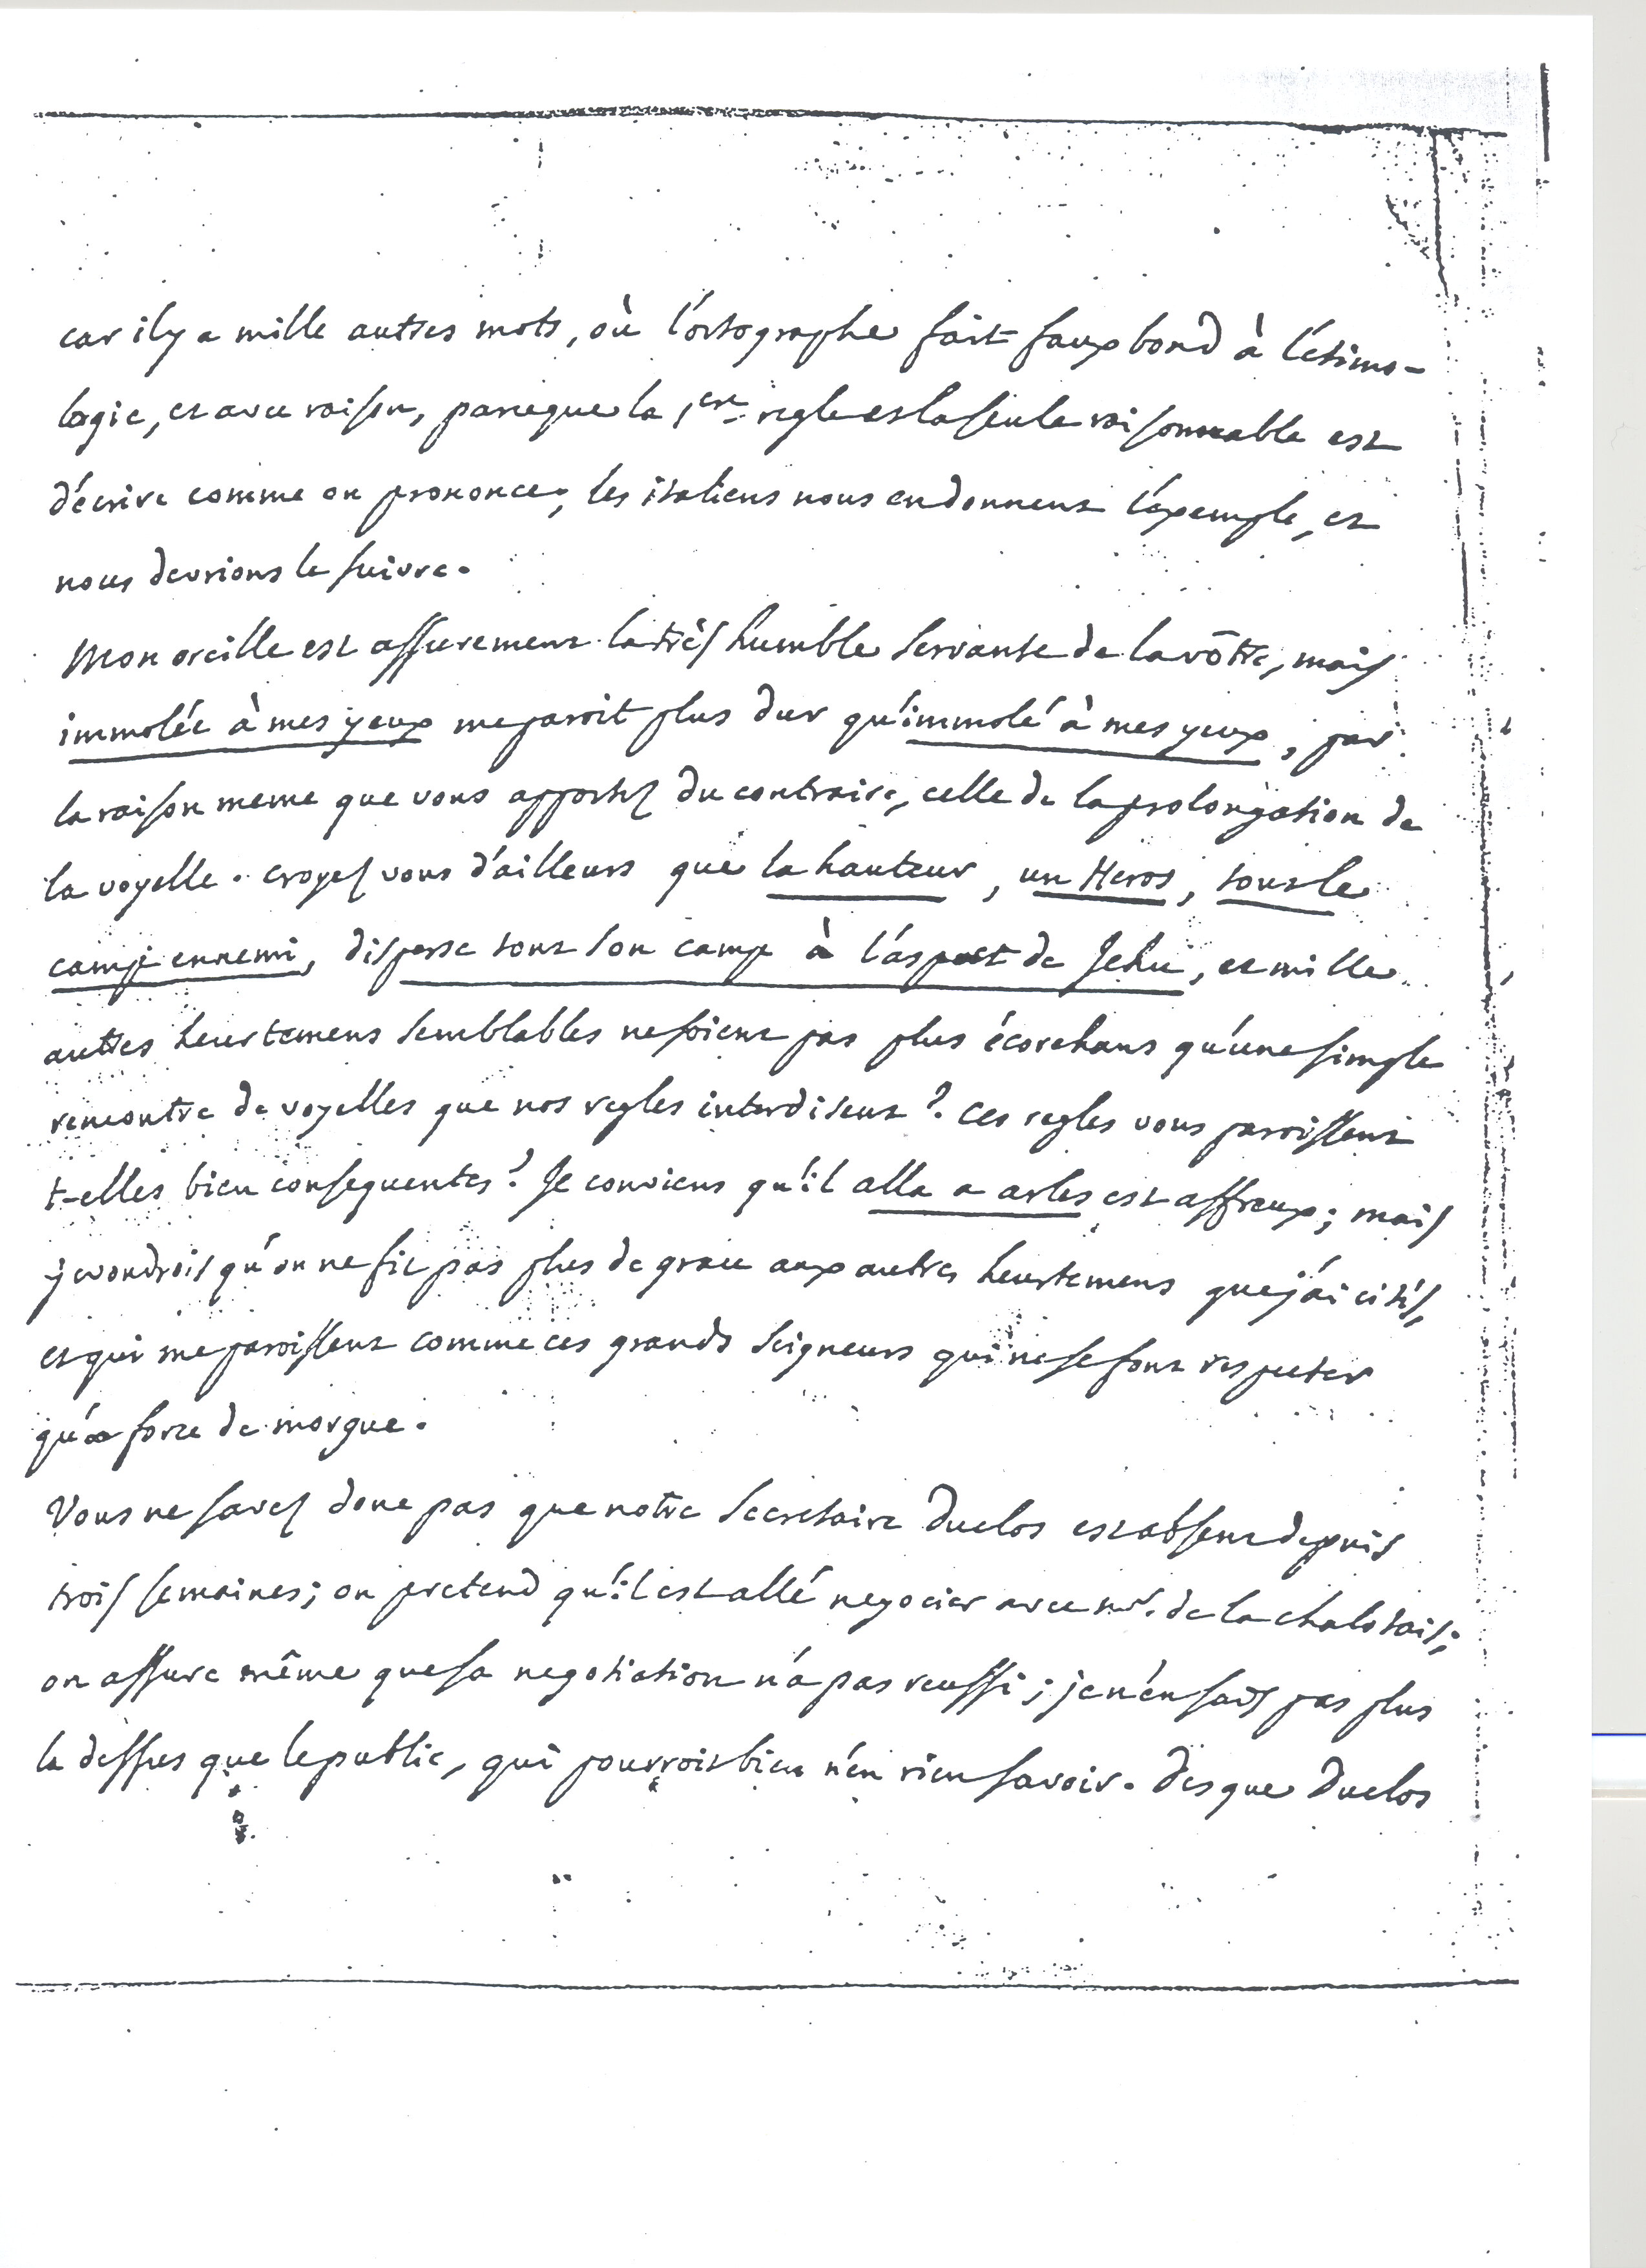 car il y a mille autres mots, où l'ortographe fait faux bond à l'étimo-
logie, et avec raison, parceque la 1ere regle et la seule raisonnable est
d'écrire comme on prononce; les italiens nous en donnent l'exemple, et
nous devrions le suivre.
Mon oreille est assurement la très humble servante de la vôtre, mais
immolée à mes yeux me paroit plus dur qu'immolé à mes yeux, par
la raison meme que vous apportez du contraire, celle de la prolongation de
la voyelle. croyez vous d'ailleurs que la hauteur, un Heros, tout le
camp ennemi, disperse tout son camp à l'aspect de Jehu, et mille
autres heurtemens semblables ne soient pas plus écorchans qu'une simple
rencontre de voyelles que nos regles interdisent? ces regles vous paroissent
t-elles bien consequentes? Je conviens qu'il alla a arles est affreux; mais
je voudrois qu'on ne fit pas plus de grace aux autres heurtemens que j'ai cités,
et qui me paroissent comme ces grands seigneurs qui ne se font respecter
qu'a force de morgue.
Vous ne savez donc pas que notre secretaire Duclos est absent depuis
trois semaines; on pretend qu'il est allé negocier avec mr. de la chalotais;
on assure même que sa negotiation n'a pas reussi; je n'en sais pas plus
la dessus que le public, qui pourroit bien n'en rien savoir. des que Duclos